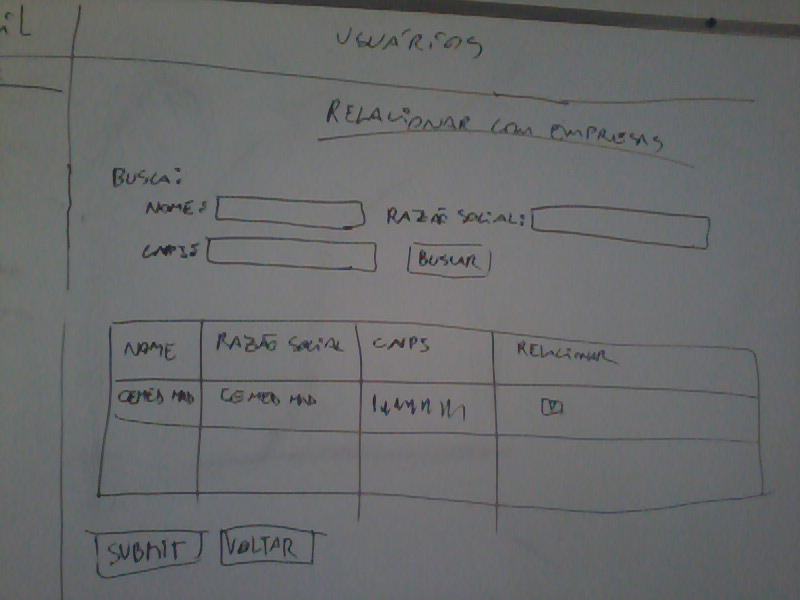 USUÁRIOS
RELACIONAR COM EMPRESAS
BUSCA:
NOME: RAZÃO SOCIAL:
CNPJ: BUSCAR
NOME RAZÃO SOCIAL CNPJ RELACIONAR
CEMED MAD CEMED MAD
SUBMIT VOLTAR